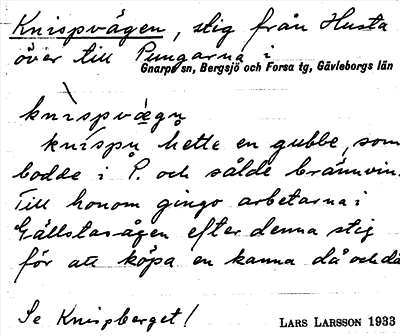 Knispvägen, stig från Husta
över till Pungarna i
Gnarps sn, Bergsjö och Forsa tg, Gävleborgs län
knispvægn
knispn hette en gubbe, som
bodde i P. och sålde brännvin.
Till honom gingo arbetarna i
Gällstasågen efter denna stig
för att köpa en kanna då och då
Se Knispberget!
LARS LARSSON 1933